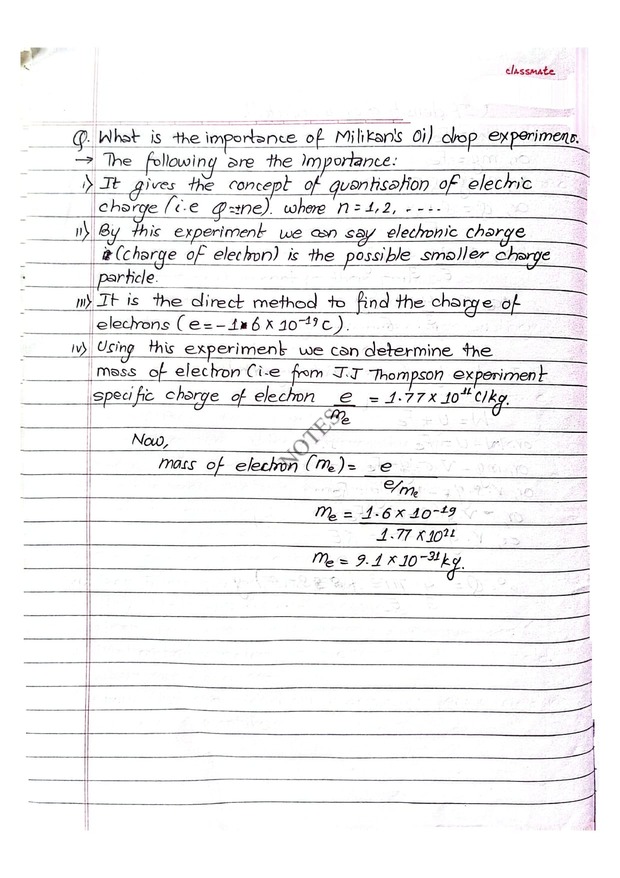 classmate
Q. What is the importance of Milikan's Oil drop experiment.
→ The following are the importance:
i) It gives the concept of quantisation of electric
charge (i.e Q=±ne). where n = 1, 2, ----
ii) By this experiment we can say electronic charge
(charge of electron) is the possible smaller charge
particle.
iii) It is the direct method to find the charge of
electrons (e = -1.6 × 10⁻¹⁹C).
iv) Using this experiment we can determine the
mass of electron (i.e from J.J Thompson experiment
specific charge of electron e/me = 1.77 × 10¹¹ C/kg.
NOTES
Now,
mass of electron (me) = e / e/me
me = 1.6 × 10⁻¹⁹ / 1.77 × 10¹¹
me = 9.1 × 10⁻³¹ kg.